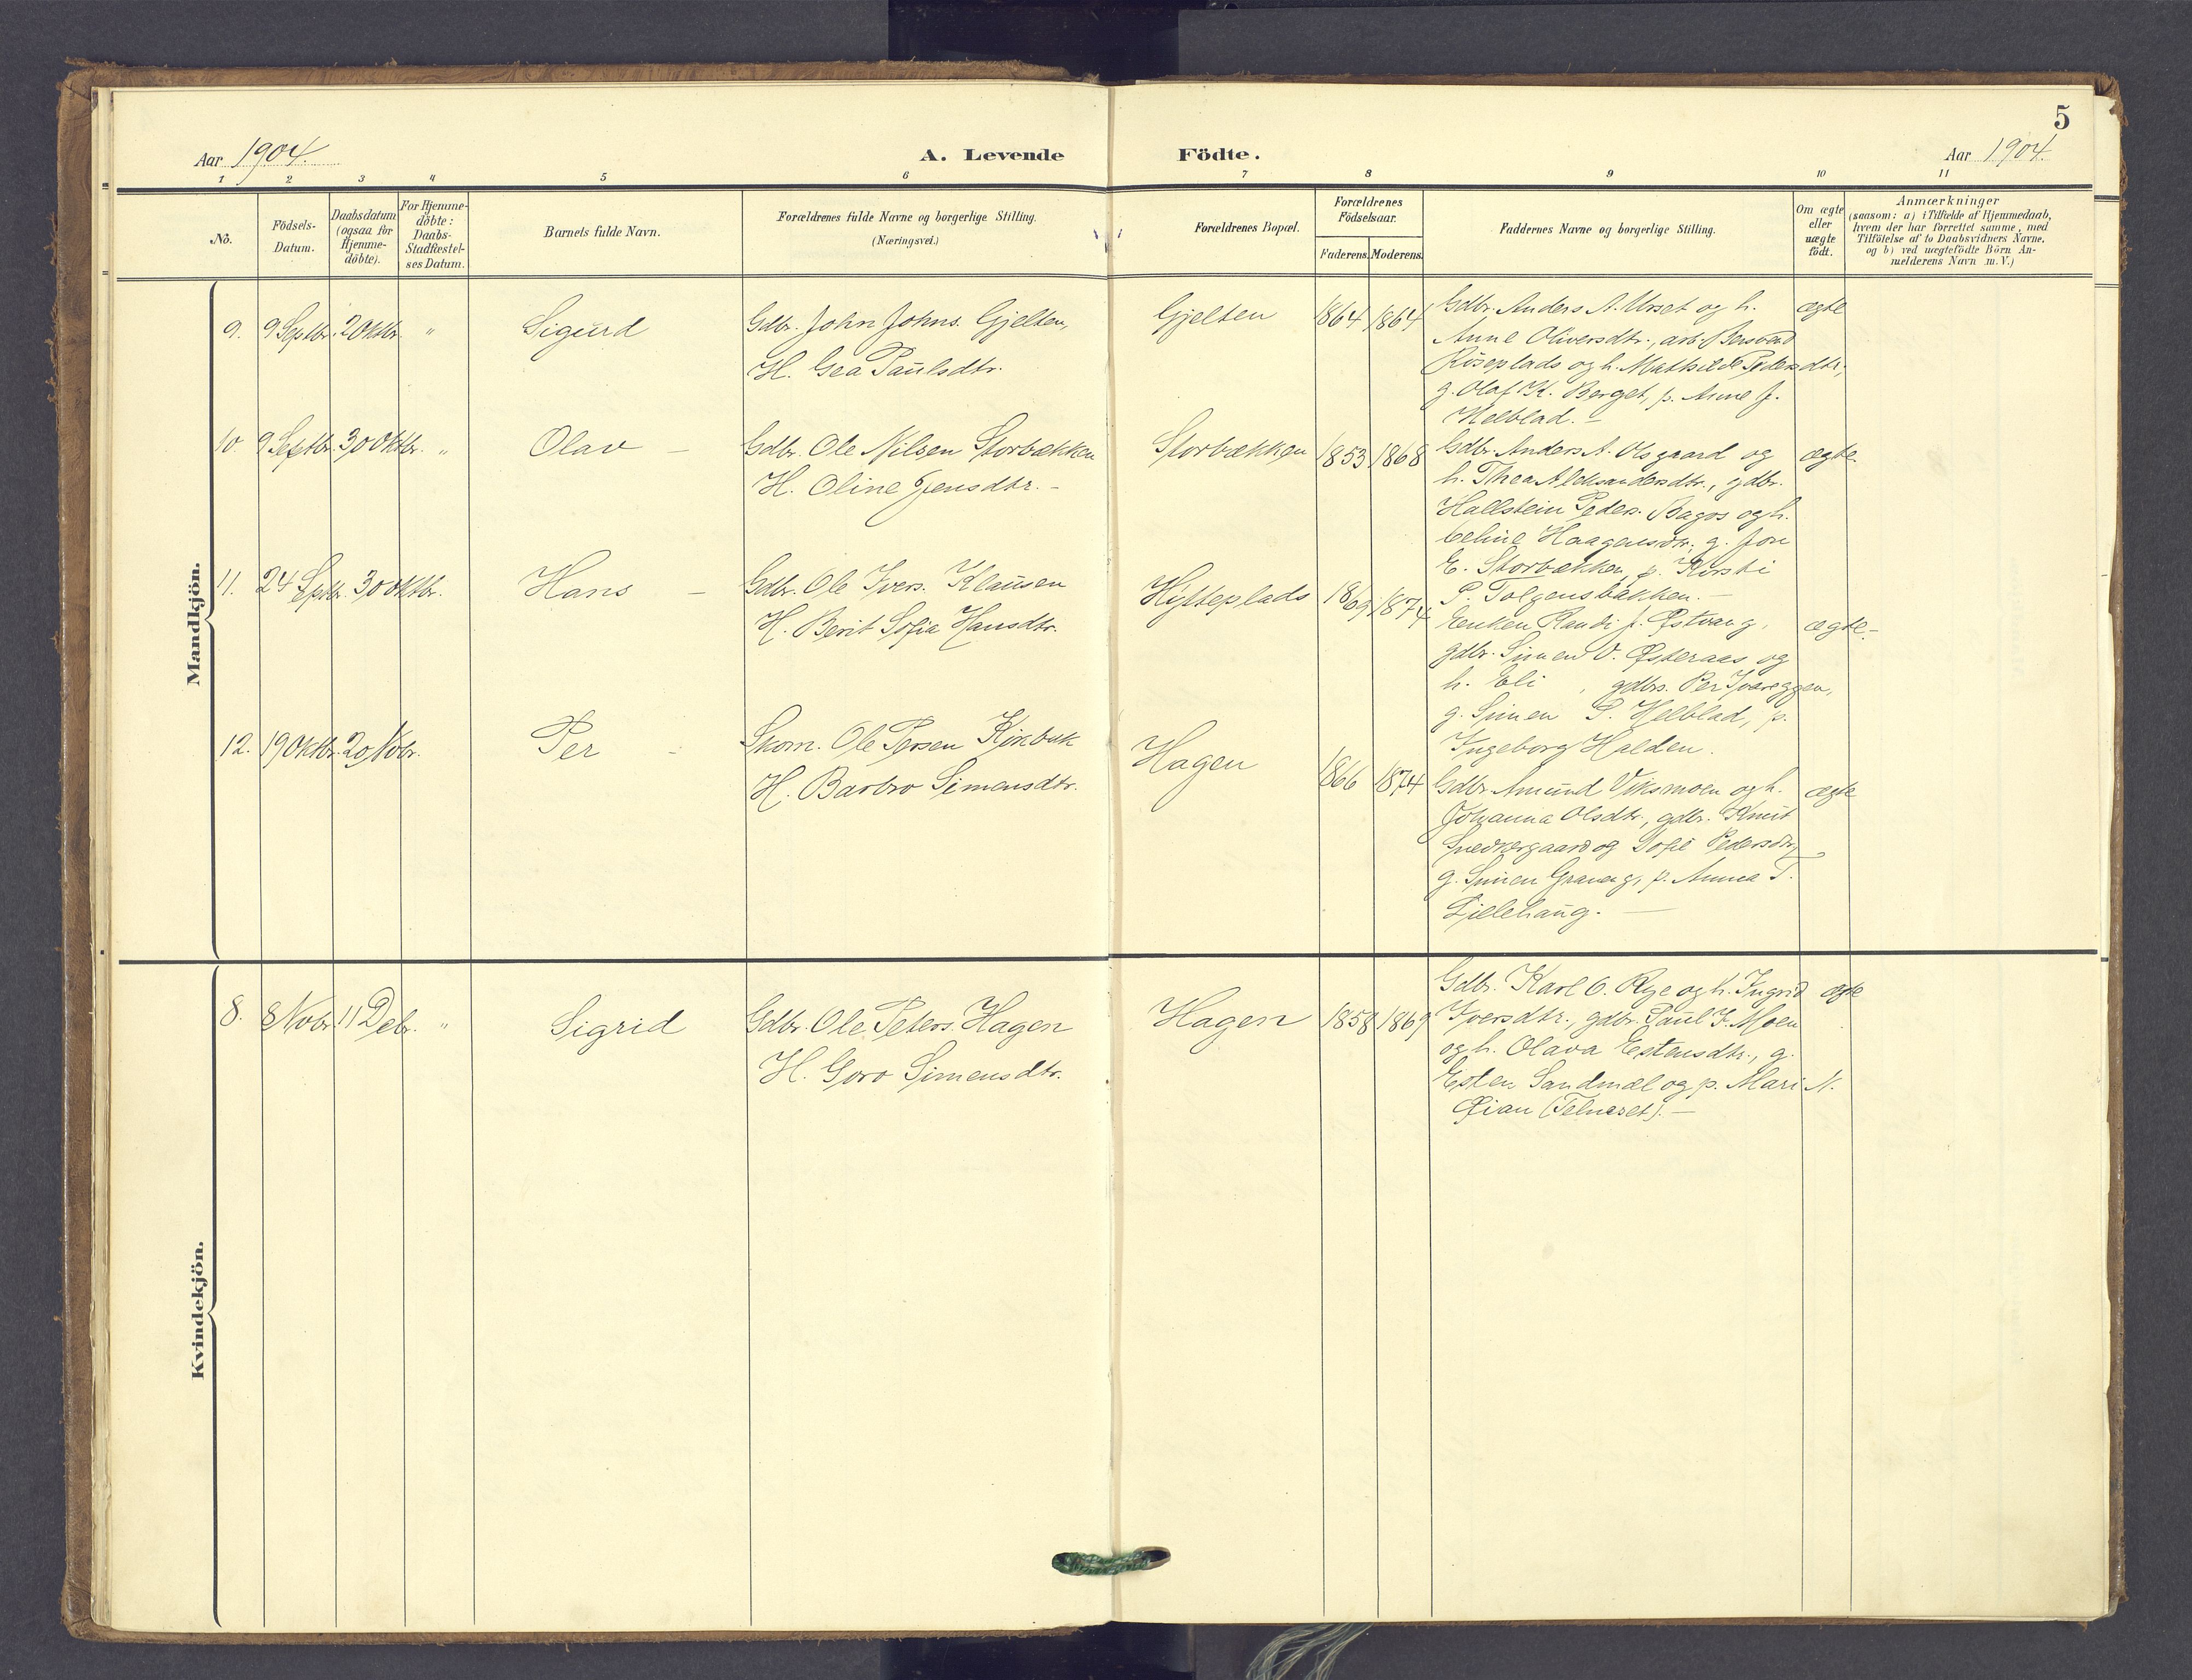 5
Aar 1904.
A. Levende Födte.
Aar 1904.
1 2 3 4 5 6 7 8 9 10 11
No.
Födsels-
Datum.
Daabsdatum
(ogsaa for
Hjemme-
döbte).
For Hjemme-
döbte:
Daabs-
Stadfæstel-
ses Datum.
Barnets fulde Navn.
Forældrenes fulde Navne og borgerlige Stilling.
(Næringsvei.)
Forældrenes Bopæl.
Forældrenes
Födselsaar.
Faderens. Moderens.
Faddernes Navne og borgerlige Stilling.
Om ægte
eller
uægte
födt.
Anmærkninger
(saasom: a) i Tilfælde af Hjemmedaab,
hvem der har forrettet samme, med
Tilföielse af to Daabsvidners Navne,
og b) ved uægtefödte Börn An-
melderens Navn m. V.)
Mandkjön.
9. 9 Septbr. 2 Oktbr. "
Sigurd
Gdbr. John Johns. Gjelten,
H. Gea Paulsdtr.
Gjelten
1864 1864
Gdbr. Anders A. Urset og h.
Anne Oliversdtr., arb.
Røseplads og h. Mathilde Pedersdtr.,
g. Olaf K. Berget, p. Anne J.
Helblad. -
ægte
10. 9 Septbr. 30 Oktbr. "
Olav -
Gdbr. Ole Nilsen Storbækken
H. Oline Jensdtr. -
Storbækken
1853 1868
Gdbr. Anders A. Olsgaard og
h. Thea Aleksandersdtr., gdbr.
Hallstein Peders. Bagos og h.
Celine Haagensdtr., g. Jon
E. Storbækken, p. Kirsti
P. Tolgensbakken. -
ægte.
11. 24 Septbr. 30 Oktbr.
Hans -
Gdbr. Ole Ivers. Klausen
H. Berit Sofia Hansdtr.
Hytteplads
1869 1874
Enken Randi J. Østvang,
gdbr. Simen O. Østeraas og
h. Eli , gdbrs. Per Ivareggen,
g. Simen P. Helblad, p.
Ingeborg Halden.
ægte -
12. 19 Oktbr. 20 Novbr.
Per -
Skom. Ole Persen Kirkbak
H. Barbro Simensdtr.
Hagen
1866 1874
Gdbr. Amund Viksmoen og h.
Johanna Olsdtr., gdbr. Knut
Snedkergaard og Sofie Pedersdtr,
g. Simen Graneng, p. Anna T.
Lillehaug. -
ægte
Kvindekjön.
8. 8 Novbr. 11 Debr. "
Sigrid
Gdbr. Ole Peters. Hagen
H. Goro Simensdtr.
Hagen
1858 1869
Gdbr. Karl O. Rye og h. Ingrid
Iversdtr., gdbr. Paul J. Moen
og h. Olava Estensdtr., g.
Esten Sandmæl og p. Mari N.
Øian (Telneset). -
ægte